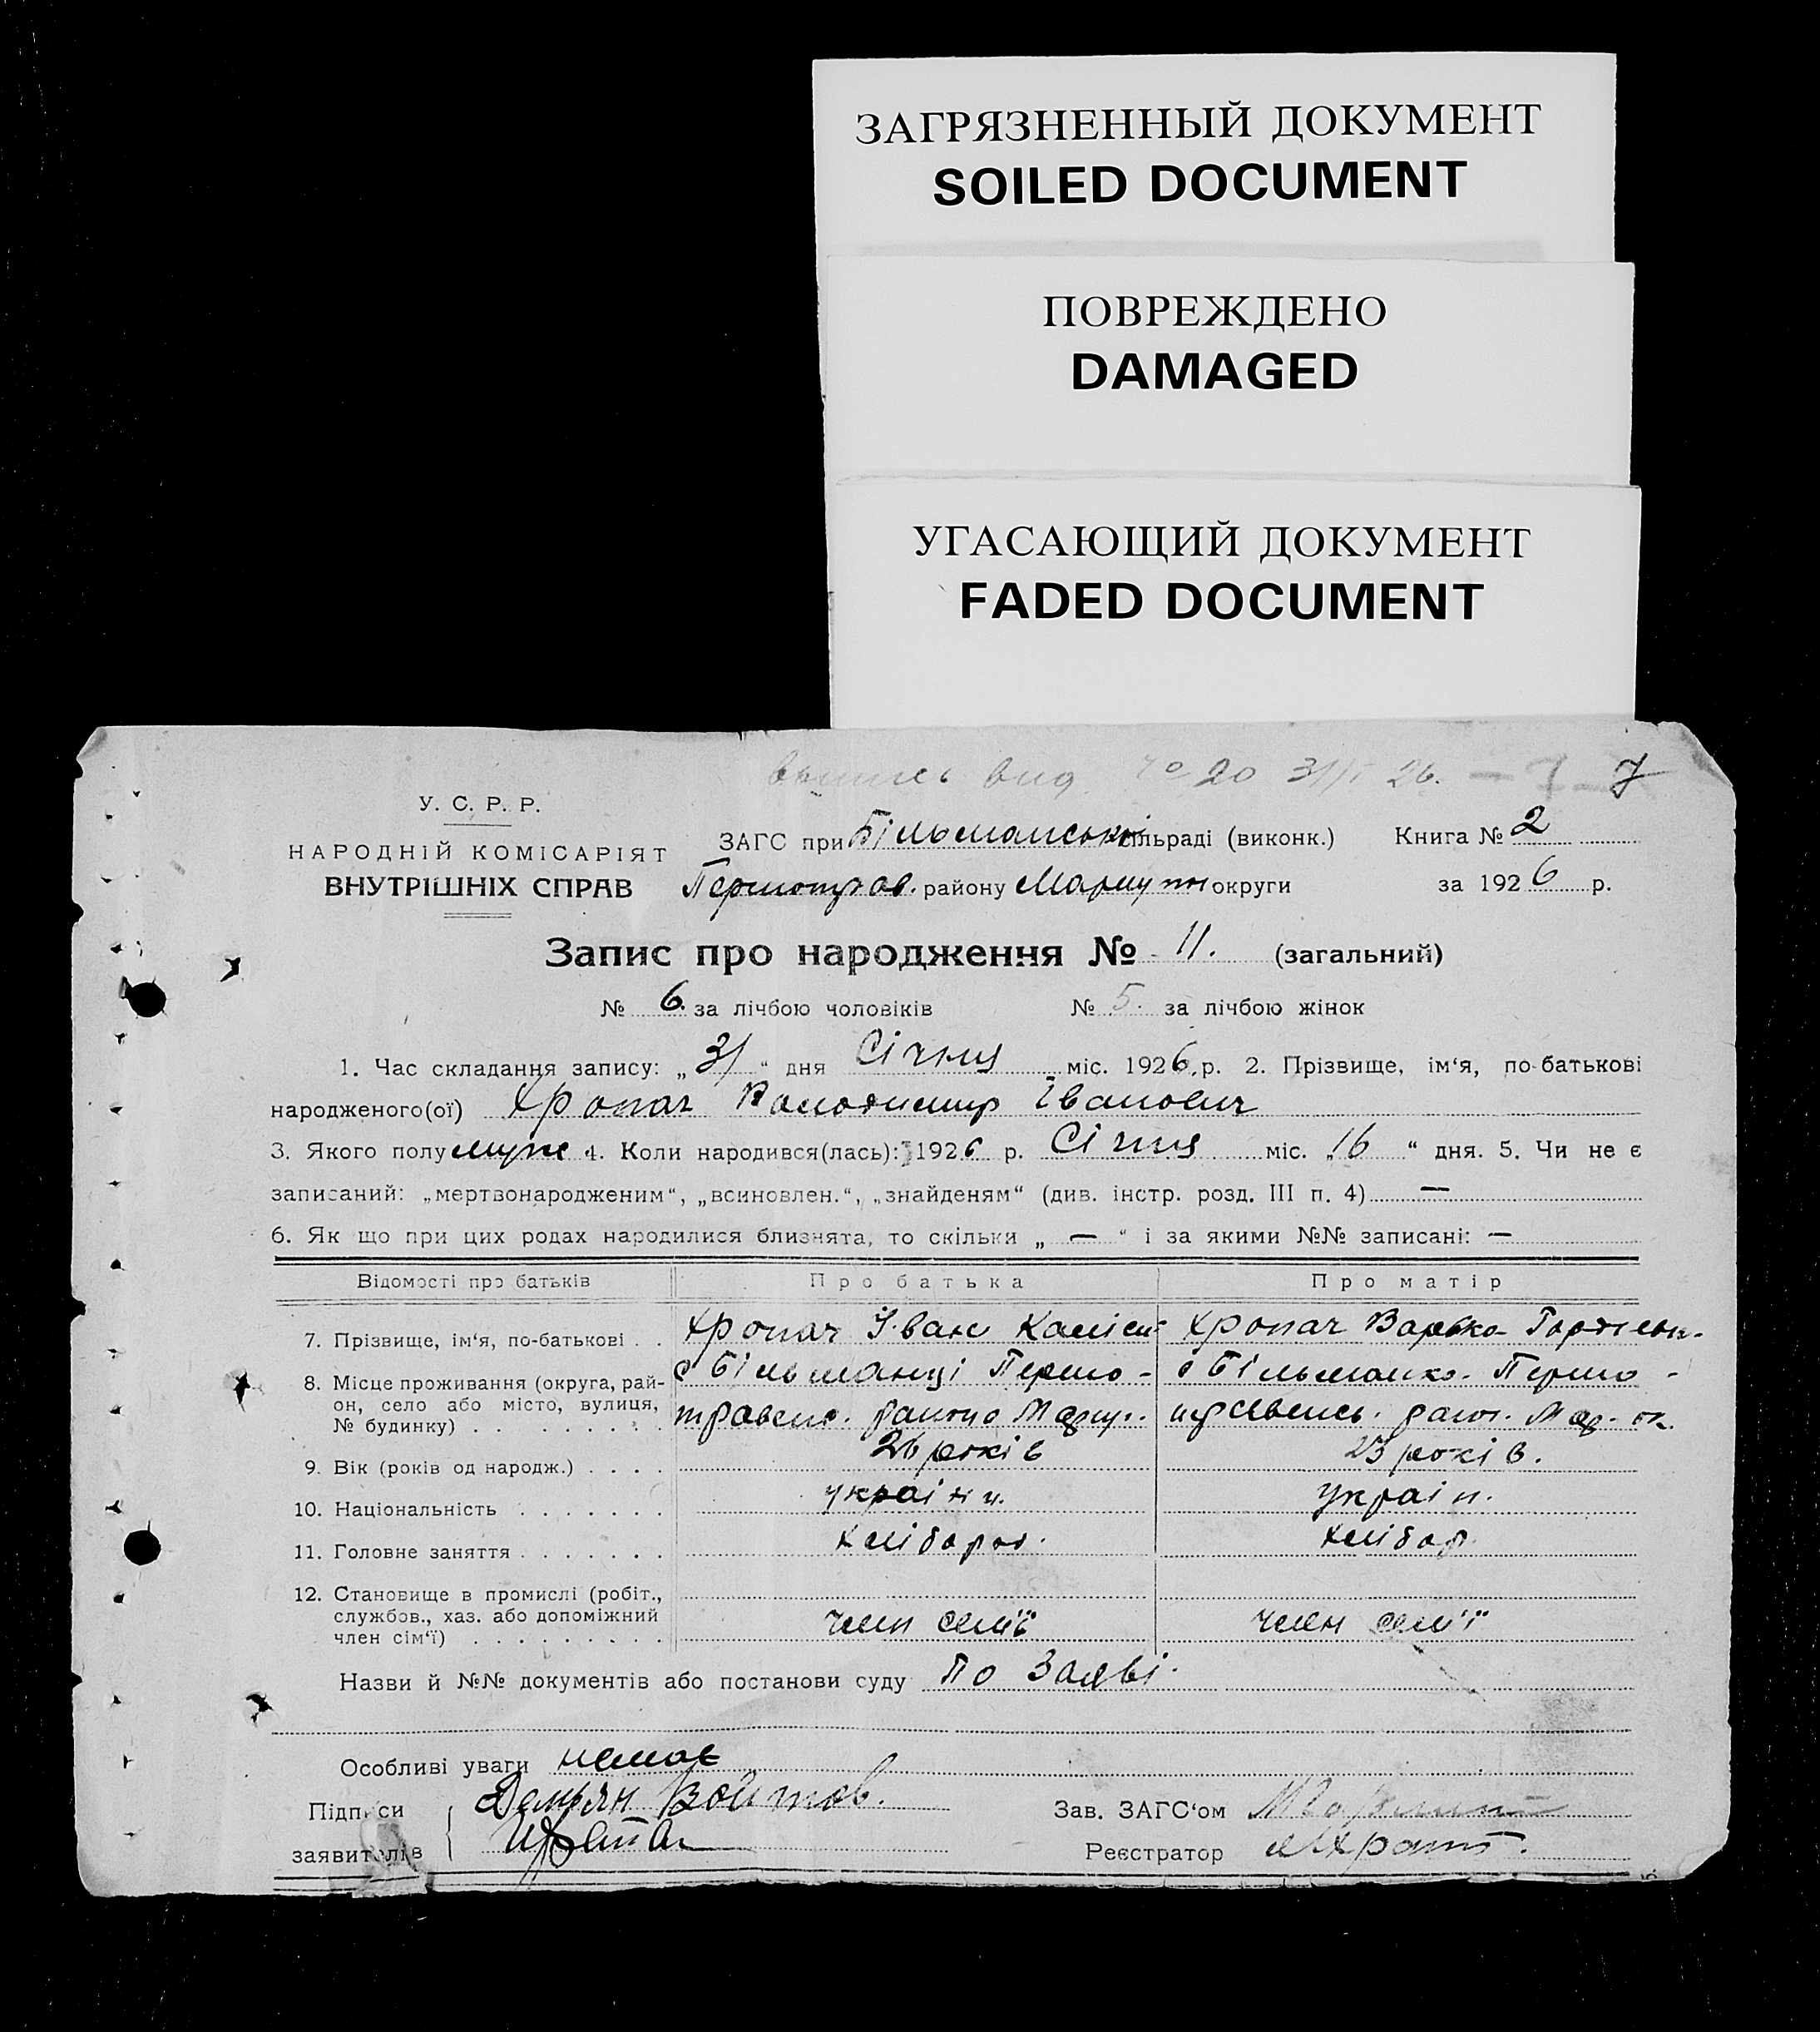 ЗАГРЯЗНЕННЫЙ ДОКУМЕНТ
SOILED DOCUMENT
ПОВРЕЖДЕНО
DAMAGED
УГАСАЮЩИЙ ДОКУМЕНТ
FADED DOCUMENT
вид № 20 31/I 26. 7
У. С. Р. Р.
НАРОДНІЙ КОМІСАРІЯТ
ВНУТРІШНІХ СПРАВ
ЗАГС при Більманській сільраді (виконк.) Книга № 2
Першотрав. району Маріуп округи за 1926 р.
Запис про народження № 11. (загальний)
№ 6. за лічбою чоловіків № 5. за лічбою жінок
1. Час складання запису: „31“ дня Січня міс. 1926 р. 2. Прізвище, ім‘я, по-батькові
народженого(ої) Хропач Володимир Іванович
3. Якого полу муж 4. Коли народився(лась): 1926 р. Січня міс. „16“ дня. 5. Чи не є
записаний: „мертвонародженим“, „всиновлен.“, „знайденям“ (див. інстр. розд. III п. 4) —
6. Як що при цих родах народилися близнята, то скільки „ — “ і за якими №№ записані: —
Відомості про батьків Про батька Про матір
7. Прізвище, ім‘я, по-батькові . . Хропач Іван Хропач Варька
8. Місце проживання (округа, рай- с Більманці Першо- с Більманка. Першо-
он, село або місто, вулиця, травенс. району Маріуп. травенсь. район. Мар. ок.
№ будинку) . . . . . . . . .
9. Вік (років од народж.) . . . . 26 років 23 років.
10. Національність . . . . . . . україн. україн.
11. Головне заняття . . . . . . . хлібороб. хлібор.
12. Становище в промислі (робіт.,
службов., хаз. або допоміжний
член сім‘ї) . . . . . . . . . член семʼї член семʼї
Назви й №№ документів або постанови суду по Заяві.
Особливі уваги немає
Підписи Демьян Войтов.
заявителів
Зав. ЗАГС‘ом
Реєстратор